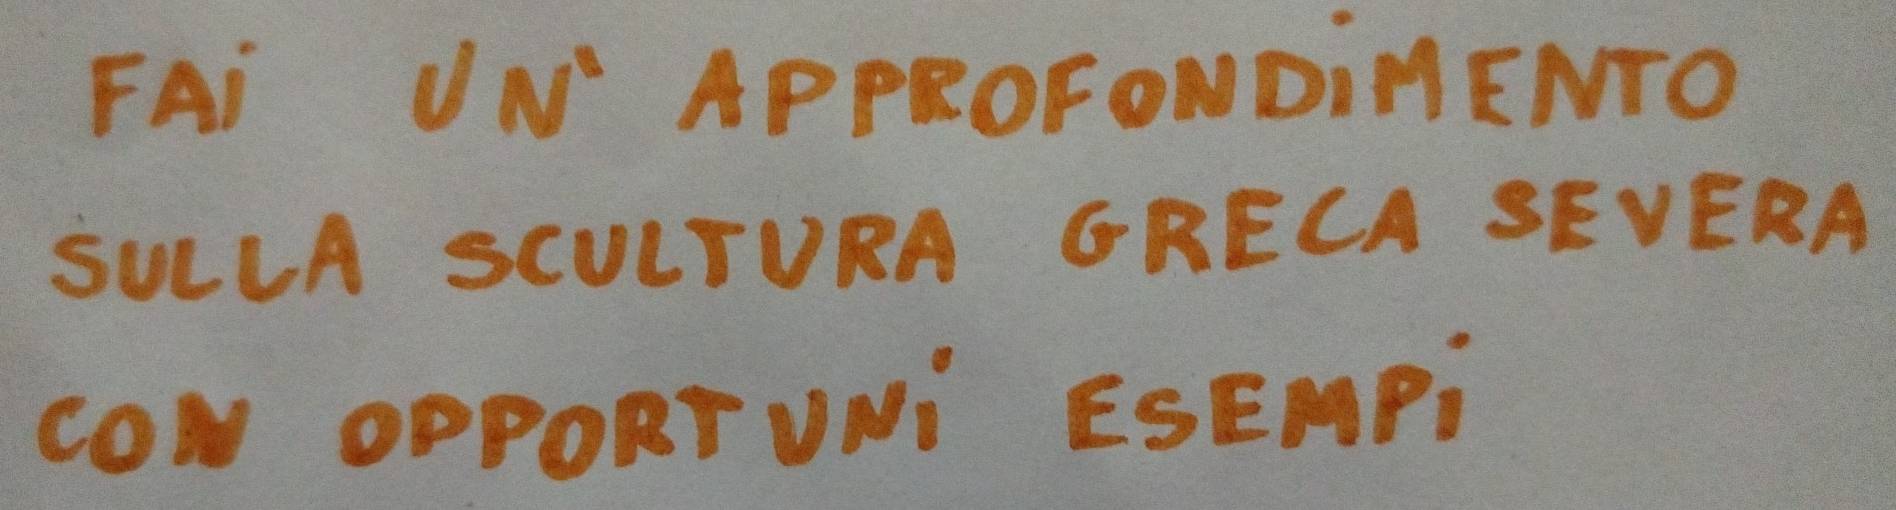 FAi UN' APPROFONDiMENTO
SULLA SCULTURA GRECA SEVERA
CON OPPORTUNi ESEMPi